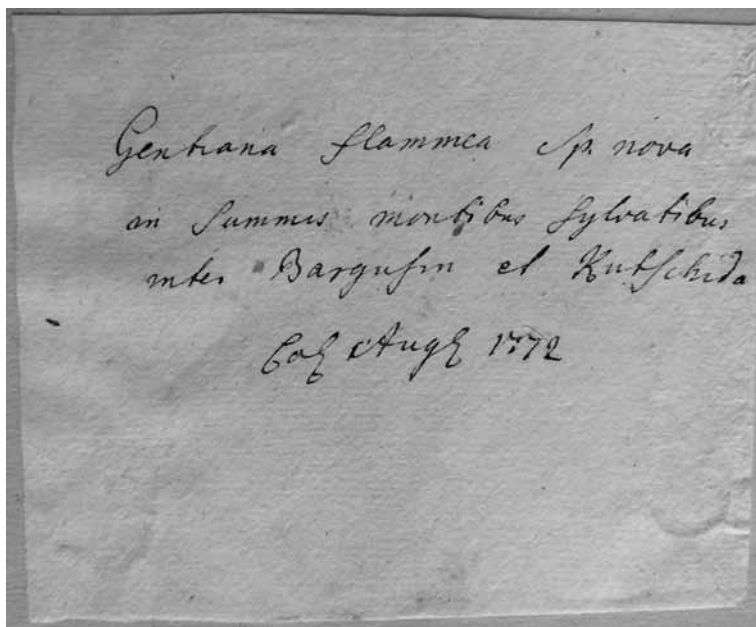 Gentiana flammea Sp. nova
in Summis montibus Sylvatibus
inter Bargusin et Kutschida
1772